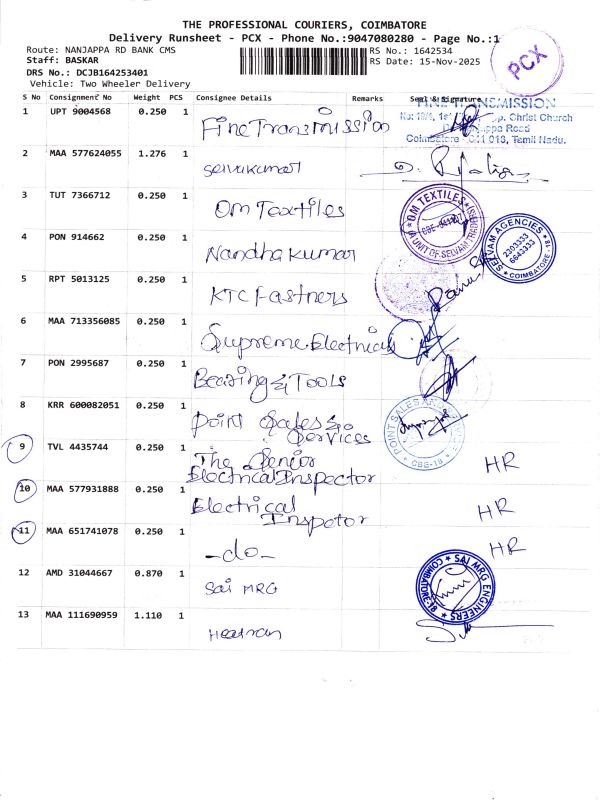 THE PROFESSIONAL COURIERS, COIMBATORE
Delivery Runsheet - PCX - Phone No.:9047080280 - Page No.:1
Route: NANJAPPA RD BANK CMS RS No.: 1642534
Staff: BASKAR RS Date: 15-Nov-2025
DRS No.: DCJB164253401
Vehicle: Two Wheeler Delivery
PCX
S No Consignment No Weight PCS Consignee Details Remarks Seal & Signature
1 UPT 9004568 0.250 1 Fine Transmission
TRANSMISSION
Christ Church
Road
Coimbatore 018, Tamil Nadu.
2 MAA 577624055 1.276 1 Selvakumar
3 TUT 7366712 0.250 1 Om Textiles
OM TEXTILES
(A UNIT OF SELVAM
4 PON 914662 0.250 1 Nandhakumar
SELVAM AGENCIES
2303333
6643333
COIMBATORE - 18
5 RPT 5013125 0.250 1 KTC Fastners
6 MAA 713356085 0.250 1 Supreme Electricals
7 PON 2995687 0.250 1 Bearing & Tools
8 KRR 600082051 0.250 1 Point Sales &
Services
POINT SALES
CBE-18
9 TVL 4435744 0.250 1 The Senior
Electrical Inspector HR
10 MAA 577931888 0.250 1 Electrical
Inspetor HR
11 MAA 651741078 0.250 1 -do- HR
12 AMD 31044667 0.870 1 Sai MRG
SAI MRG ENGINEERS
COIMBATORE-18
13 MAA 111690959 1.110 1